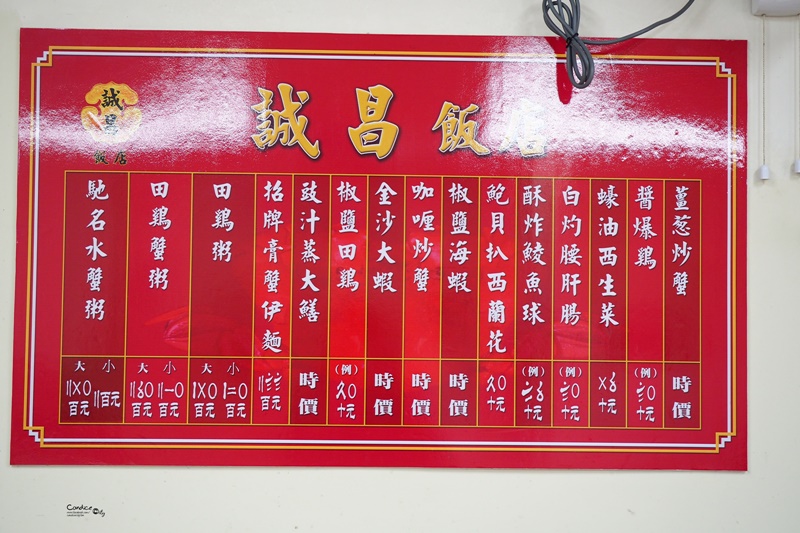 誠昌飯店
誠
昌
飯店
薑葱炒蟹
時價
醬爆鷄
(例)
十元
蠔油西生菜
〤〥
十元
白灼腰肝腸
(例)
十元
酥炸鯪魚球
(例)
十元
鮑貝扒西蘭花
〩〇
十元
椒鹽海蝦
時價
咖喱炒蟹
時價
金沙大蝦
時價
椒鹽田鷄
(例)
〩〇
十元
豉汁蒸大鱔
時價
招牌膏蟹伊麵
百元
田鷄粥
小
〡二〇
百元
大
〡〤〇
百元
田鷄蟹粥
小
〢一〇
百元
大
〢〥〇
百元
馳名水蟹粥
小
〢百元
大
〢〤〇
百元
Candice City